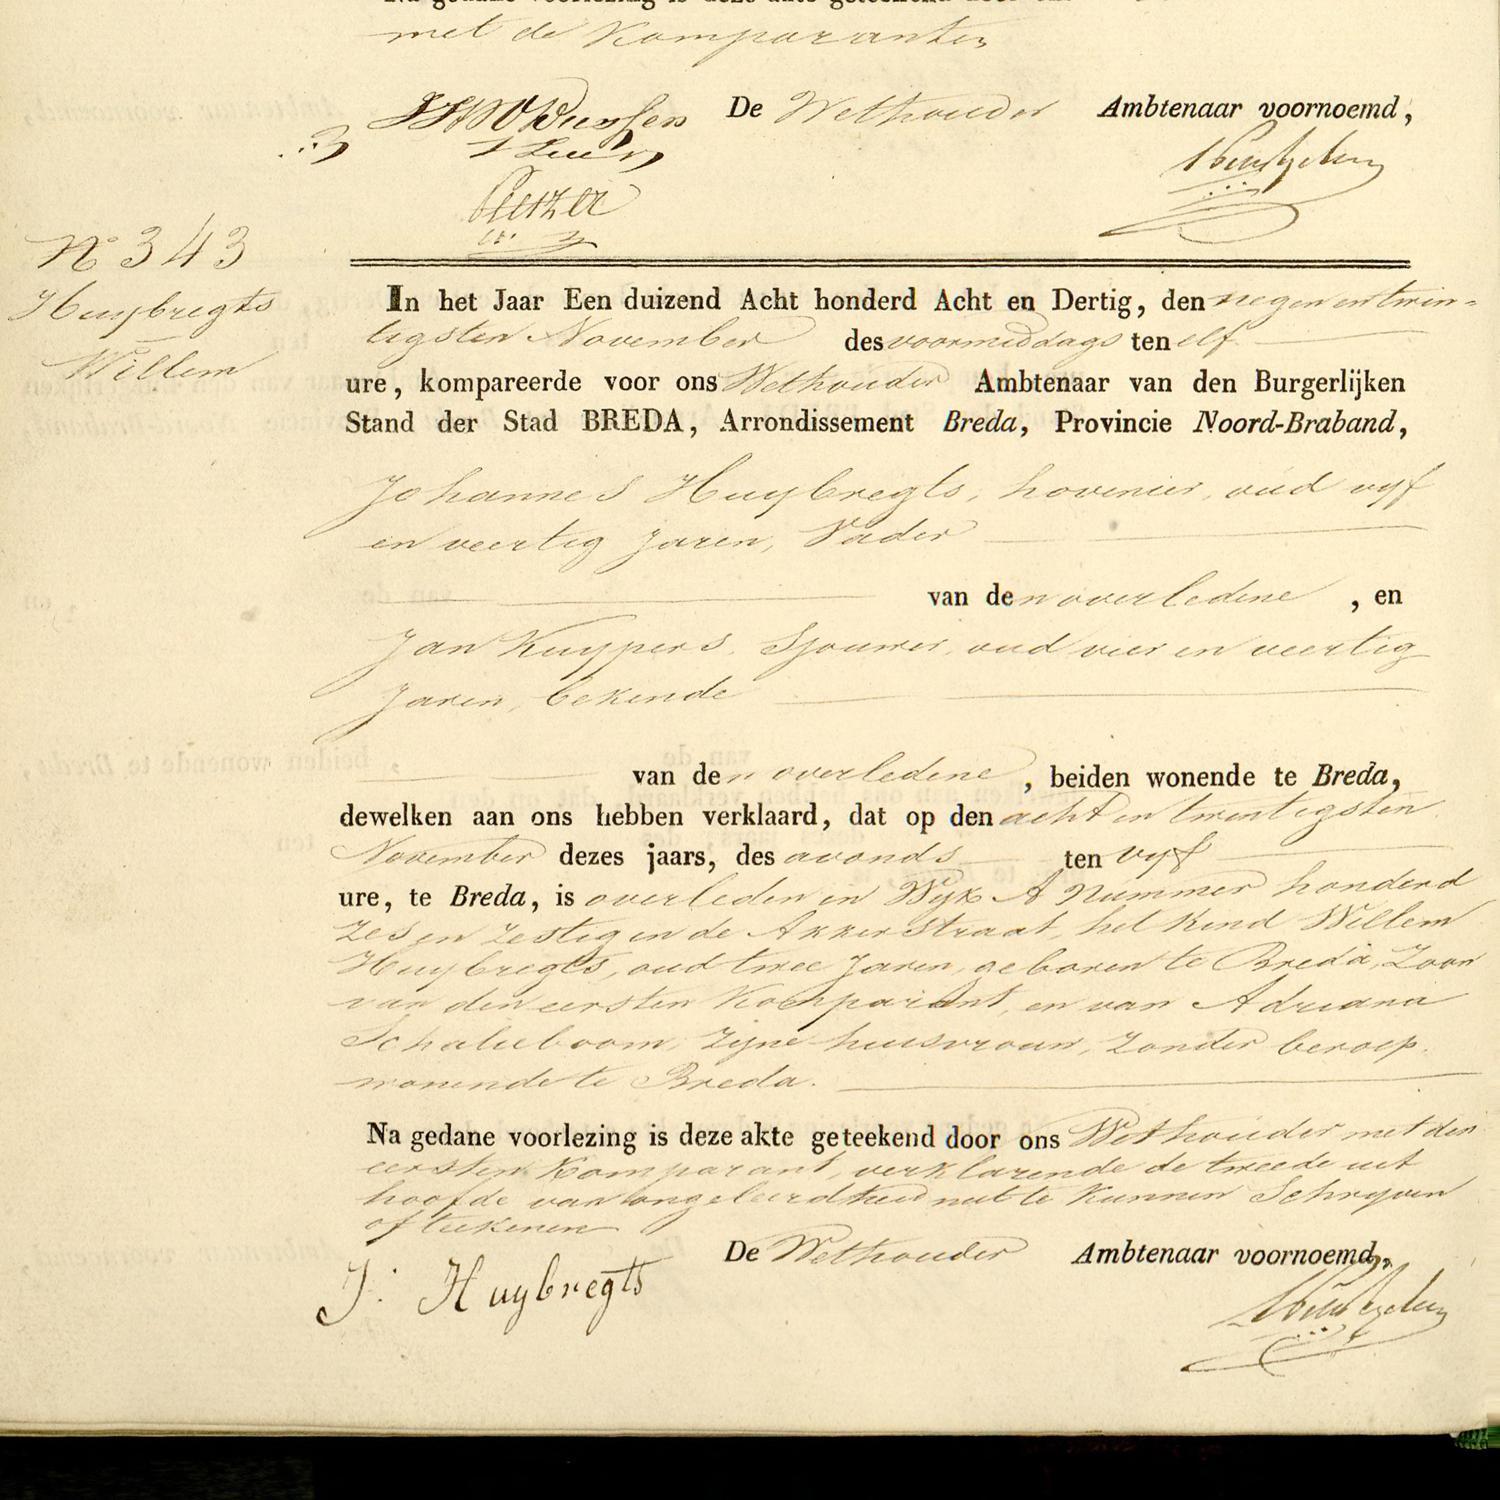 Na gedane voorlezing is deze akte geteekend door ons
met de Komparanten
De Wethouder Ambtenaar voornoemd,
N° 343
Huybregts
Willem
In het Jaar Een duizend Acht honderd Acht en Dertig, den negen en twin-
tigsten November des voormiddags ten elf
ure, kompareerde voor ons Wethouder Ambtenaar van den Burgerlijken
Stand der Stad BREDA, Arrondissement Breda, Provincie Noord-Braband,
Johannes Huybregts, hovenier, oud vyf
en veertig Jaren, Vader
van den overledene, en
Jan Kuypers, Sjouwer, oud vier en veertig
Jaren, bekende
van den overledene, beiden wonende te Breda,
dewelken aan ons hebben verklaard, dat op den acht en twintigsten
November dezes jaars, des avonds ten vyf
ure, te Breda, is overleden in Wyk A Nummer honderd
zes en zestig in de Akkerstraat, het kind Willem
Huybregts, oud twee Jaren, geboren te Breda, Zoon
van den eersten Komparant, en van Adriana
Schalieboom, zyne huisvrouw, zonder beroep,
wonende te Breda.
Na gedane voorlezing is deze akte geteekend door ons Wethouder met den
eersten Komparant, verklarende de tweede uit
hoofde van ongeleerdheid niet te kunnen Schryven
of teekenen
De Wethouder Ambtenaar voornoemd,
J. Huybregts